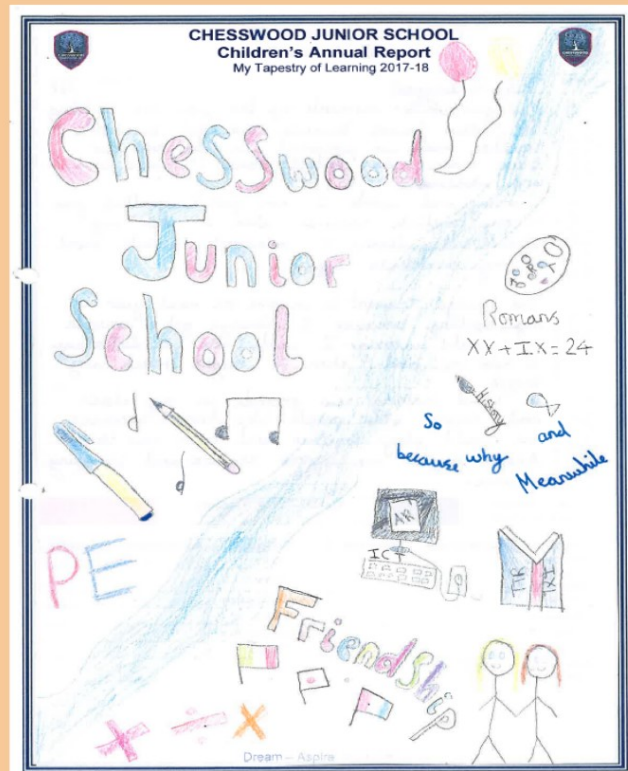 CHESSWOOD JUNIOR SCHOOL
Children's Annual Report
My Tapestry of Learning 2017-18
Chesswood
Junior
School
Romans
XX + IX = 24
History
So
because why
and
Meanwhile
AR
ICT
PE
Friendship
+ ÷ x
Dream – Aspire